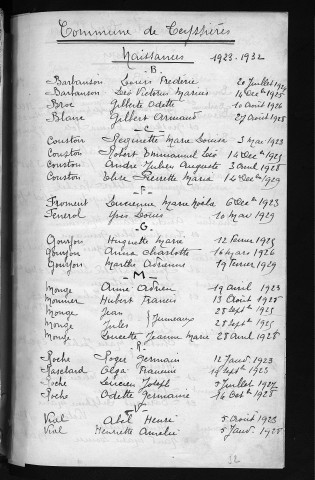 Commune de Teyssières
Naissances 1923-1932
-B-
Barbanson Louis Frédéric 20 Juillet
Barbanson Léo Victor Marius 14 Dec 1925
Broc Gilberte Odette 10 août 1926
Blanc Gilbert Armand 29 août 1928
-C-
Couston Huguette Marie Louise 3 mai 1923
Couston Robert Emmanuel Léo 14 Dec 1925
Couston André Julien Auguste 3 avril 1928
Couston Elise Pierrette Maria 14 Dec 1929
-F-
Froment Lucienne Marie Noële 6 Dec 1923
Fenerol Yves Louis 10 mai 1929
-G-
Gourjon Huguette Marie 12 février 1925
Gourjon Anna Charlotte 16 mars 1926
Gourjon Marthe Adrienne 19 février 1929
-M-
Monge Aimé Adrien 19 avril 1923
Monnier Hubert Francis 13 août 1925
Monge Jean 25 sept 1925
Monge Jules } Jumeaux 25 sept 1925
Monge Lucette Jeanne Marie 28 avril 1928
-R-
Roche Roger Germain 12 Janv. 1923
Olga Francine sept 1923
Roche Lucien Joseph Juillet 1927
Roche Odette Germaine 14 Oct 1928
-V-
Vial Abel Henri 5 août 1923
Vial Henriette Amélie 5 Janv. 1928